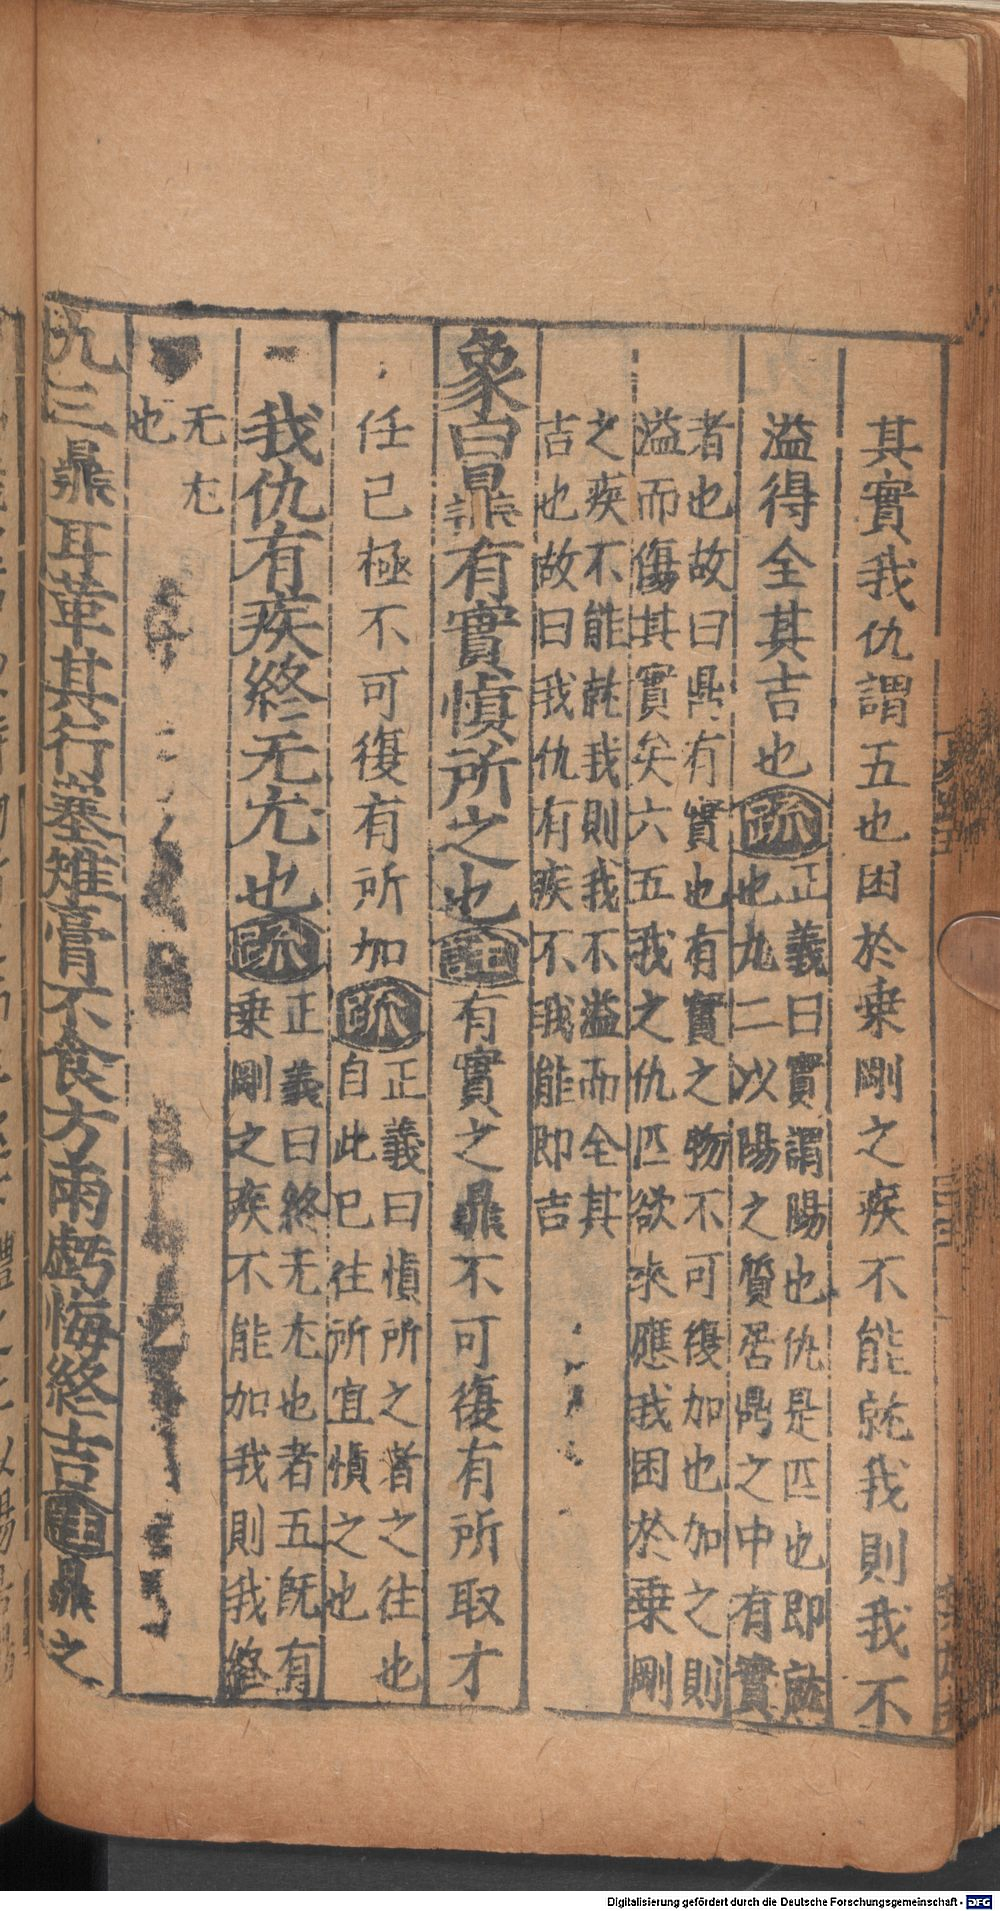 其實我仇謂五也困於乗剛之疾不能就我則我不
溢得全其吉也
疏
正義曰實謂陽也仇是匹也即就
也九二以陽之質居鼎之中有實
者也故曰鼎有實也有實之物不可復加也加之則
溢而傷其實矣六五我之仇匹欲來應我困於乗剛
之疾不能就我則我不溢而全其
吉也故曰我仇有疾不我能即吉
象曰鼎有實慎所之也
註
有實之鼎不可復有所取才
任己極不可復有所加
疏
正義曰慎所之者之往也
自此已往所宜慎之也
我仇有疾終无尤也
疏
正義曰終无尤也者五既有
乗剛之疾不能加我則我終
无尤
也
九三鼎耳革其行塞雉膏不食方雨虧悔終吉
註
鼎之
Digitalisierung gefördert durch die Deutsche Forschungsgemeinschaft - DFG